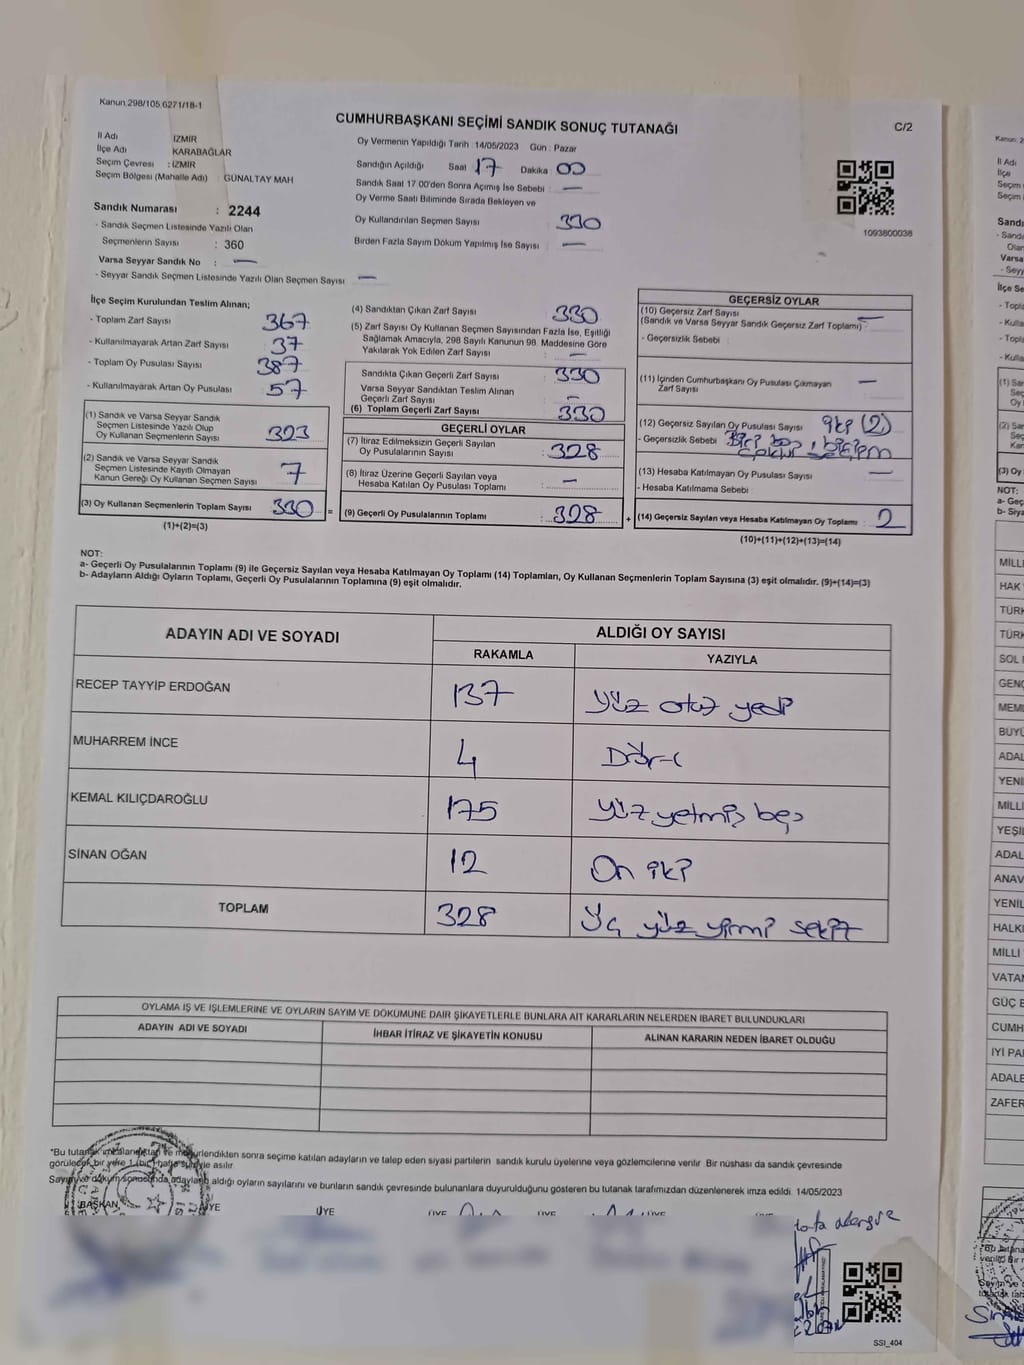 Kanun:298/105,6271/18-1
CUMHURBAŞKANI SEÇİMİ SANDIK SONUÇ TUTANAĞI
C/2
İl Adı İZMİR
İlçe Adı KARABAĞLAR
Seçim Çevresi : İZMİR
Seçim Bölgesi (Mahalle Adı) : GÜNALTAY MAH
Sandık Numarası : 2244
- Sandık Seçmen Listesinde Yazılı Olan
Seçmenlerin Sayısı : 360
Varsa Seyyar Sandık No : —
- Seyyar Sandık Seçmen Listesinde Yazılı Olan Seçmen Sayısı —
Oy Vermenin Yapıldığı Tarih : 14/05/2023 Gün : Pazar
Sandığın Açıldığı Saat 17 Dakika : 00
Sandık Saat 17:00'den Sonra Açılmış İse Sebebi : —
Oy Verme Saati Bitiminde Sırada Bekleyen ve
Oy Kullandırılan Seçmen Sayısı 330
Birden Fazla Sayım Döküm Yapılmış İse Sayısı : —
1093800038
İlçe Seçim Kurulundan Teslim Alınan;
- Toplam Zarf Sayısı 367
- Kullanılmayarak Artan Zarf Sayısı : 37
- Toplam Oy Pusulası Sayısı 387
- Kullanılmayarak Artan Oy Pusulası : 57
(1) Sandık ve Varsa Seyyar Sandık
Seçmen Listesinde Yazılı Olup
Oy Kullanan Seçmenlerin Sayısı : 323
(2) Sandık ve Varsa Seyyar Sandık
Seçmen Listesinde Kayıtlı Olmayan
Kanun Gereği Oy Kullanan Seçmen Sayısı : 7
(3) Oy Kullanan Seçmenlerin Toplam Sayısı : 330 =
(1)+(2)=(3)
(4) Sandıktan Çıkan Zarf Sayısı 330
(5) Zarf Sayısı Oy Kullanan Seçmen Sayısından Fazla İse, Eşitliği
Sağlamak Amacıyla, 298 Sayılı Kanunun 98. Maddesine Göre
Yakılarak Yok Edilen Zarf Sayısı : —
Sandıkta Çıkan Geçerli Zarf Sayısı : 330
Varsa Seyyar Sandıktan Teslim Alınan
Geçerli Zarf Sayısı : —
(6) Toplam Geçerli Zarf Sayısı : 330
GEÇERLİ OYLAR
(7) İtiraz Edilmeksizin Geçerli Sayılan
Oy Pusulalarının Sayısı : 328
(8) İtiraz Üzerine Geçerli Sayılan veya
Hesaba Katılan Oy Pusulası Toplamı : —
(9) Geçerli Oy Pusulalarının Toplamı : 328 +
GEÇERSİZ OYLAR
(10) Geçersiz Zarf Sayısı
(Sandık ve Varsa Seyyar Sandık Geçersiz Zarf Toplamı) : —
- Geçersizlik Sebebi :
(11) İçinden Cumhurbaşkanı Oy Pusulası Çıkmayan
Zarf Sayısı : —
(12) Geçersiz Sayılan Oy Pusulası Sayısı : iki (2)
- Geçersizlik Sebebi : Biri boş, birisi
(13) Hesaba Katılmayan Oy Pusulası Sayısı : —
- Hesaba Katılmama Sebebi :
(14) Geçersiz Sayılan veya Hesaba Katılmayan Oy Toplamı : 2
(10)+(11)+(12)+(13)=(14)
NOT:
a- Geçerli Oy Pusulalarının Toplamı (9) ile Geçersiz Sayılan veya Hesaba Katılmayan Oy Toplamı (14) Toplamları, Oy Kullanan Seçmenlerin Toplam Sayısına (3) eşit olmalıdır. (9)+(14)=(3)
b- Adayların Aldığı Oyların Toplamı, Geçerli Oy Pusulalarının Toplamına (9) eşit olmalıdır.
ADAYIN ADI VE SOYADI ALDIĞI OY SAYISI
RAKAMLA YAZIYLA
RECEP TAYYİP ERDOĞAN 137 Yüz otuz yedi
MUHARREM İNCE 4 Dört
KEMAL KILIÇDAROĞLU 175 Yüz yetmiş beş
SİNAN OĞAN 12 On iki
TOPLAM 328 Üç yüz yirmi sekiz
OYLAMA İŞ VE İŞLEMLERİNE VE OYLARIN SAYIM VE DÖKÜMÜNE DAİR ŞİKAYETLERLE BUNLARA AİT KARARLARIN NELERDEN İBARET BULUNDUKLARI
ADAYIN ADI VE SOYADI İHBAR İTİRAZ VE ŞİKAYETİN KONUSU ALINAN KARARIN NEDEN İBARET OLDUĞU
*Bu tutanak imzalandıktan ve mühürlendikten sonra seçime katılan adayların ve talep eden siyasi partilerin sandık kurulu üyelerine veya gözlemcilerine verilir. Bir nüshası da sandık çevresinde
görülecek bir yere 1 (bir) hafta süreyle asılır.
Sayım ve döküm sonucunda adayların aldığı oyların sayılarını ve bunların sandık çevresinde bulunanlara duyurulduğunu gösteren bu tutanak tarafımızdan düzenlenerek imza edildi. 14/05/2023
BAŞKAN ÜYE ÜYE ÜYE ÜYE ÜYE
SSI_404
Kanun: 2
İl Adı
İlçe
Seçim
Seçim
Sandı
MİLLİ
HAK
TÜRK
TÜRK
SOL
GENÇ
MEML
BÜYÜ
ADAL
YENİ
MİLLİ
YEŞİL
ADAL
ANAV
YENİL
HALKI
MİLLİ
VATAN
GÜÇ B
CUMH
İYİ PA
ADALE
ZAFER